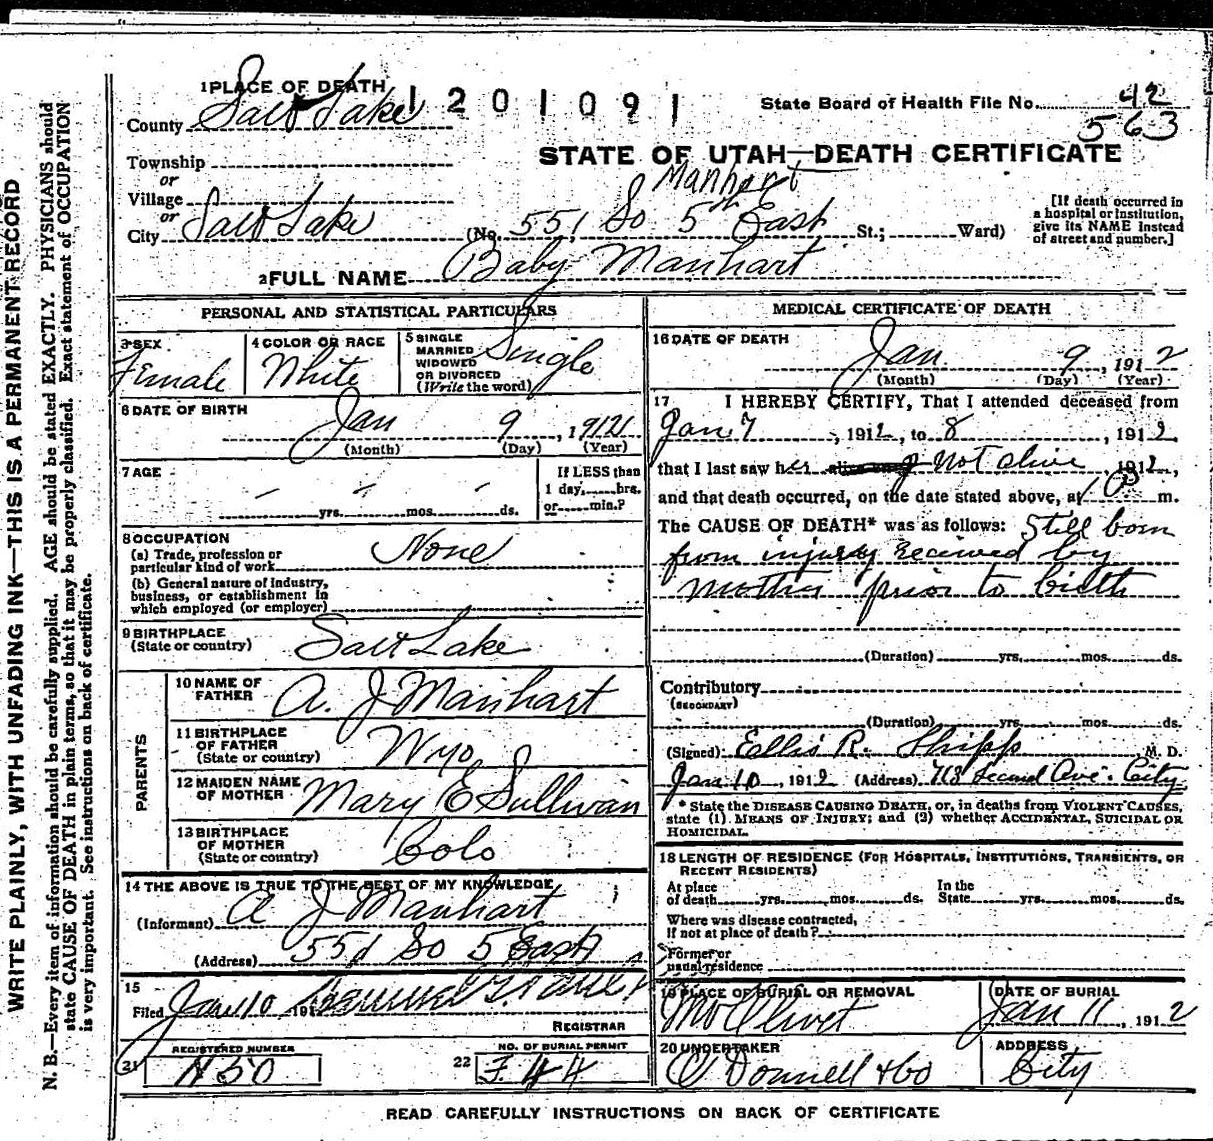 WRITE PLAINLY, WITH UNFADING INK—THIS IS A PERMANENT RECORD
N. B.—Every item of information should be carefully supplied. AGE should be stated EXACTLY. PHYSICIANS should
state CAUSE OF DEATH in plain terms, so that it may be properly classified. Exact statement of OCCUPATION
is very important. See instructions on back of certificate.
1 PLACE OF DEATH
1201091
State Board of Health File No. 42
563
County Salt Lake
STATE OF UTAH—DEATH CERTIFICATE
Township
or
Manhart
Village
or
City Salt Lake (No. 551 So 5th East St.; Ward)
[If death occurred in
a hospital or institution,
give its NAME instead
of street and number.]
2 FULL NAME Baby Manhart
PERSONAL AND STATISTICAL PARTICULARS
3 SEX
Female
4 COLOR OR RACE
White
5 SINGLE
MARRIED
WIDOWED
OR DIVORCED
(Write the word)
Single
6 DATE OF BIRTH
Jan 9, 1912
(Month) (Day) (Year)
7 AGE
- - -
yrs. mos. ds.
If LESS than
1 day, hrs.
or min.?
8 OCCUPATION
(a) Trade, profession or
particular kind of work None
(b) General nature of industry,
business, or establishment in
which employed (or employer)
9 BIRTHPLACE
(State or country) Salt Lake
PARENTS
10 NAME OF
FATHER A. J Manhart
11 BIRTHPLACE
OF FATHER
(State or country) Wyo
12 MAIDEN NAME
OF MOTHER Mary E Sullivan
13 BIRTHPLACE
OF MOTHER
(State or country) Colo
14 THE ABOVE IS TRUE TO THE BEST OF MY KNOWLEDGE
(Informant) A J Manhart
(Address) 551 So 5 East
15
Filed Jan 10 191
REGISTRAR
21 REGISTERED NUMBER
N 50
22 NO. OF BURIAL PERMIT
F 44
MEDICAL CERTIFICATE OF DEATH
16 DATE OF DEATH
Jan 9, 1912
(Month) (Day) (Year)
17 I HEREBY CERTIFY, That I attended deceased from
Jan 7, 1912, to 8, 1912,
that I last saw her not alive, 1912,
and that death occurred, on the date stated above, at 10 P m.
The CAUSE OF DEATH* was as follows: Still born
from injury received by
mother prior to birth
(Duration) yrs. mos. ds.
Contributory
(SECONDARY)
(Duration) yrs. mos. ds.
(Signed) Ellis R. Shipp M. D.
Jan 10, 1912 (Address) 713 Second Ave. City
* State the DISEASE CAUSING DEATH, or, in deaths from VIOLENT CAUSES,
state (1) MEANS OF INJURY; and (2) whether ACCIDENTAL, SUICIDAL OR
HOMICIDAL.
18 LENGTH OF RESIDENCE (FOR HOSPITALS, INSTITUTIONS, TRANSIENTS, OR
RECENT RESIDENTS)
At place
of death yrs. mos. ds.
In the
State yrs. mos. ds.
Where was disease contracted,
If not at place of death?
Former or
usual residence
19 PLACE OF BURIAL OR REMOVAL
Mt Olivet
DATE OF BURIAL
Jan 11, 1912
20 UNDERTAKER
O Donnell & Co
ADDRESS
City
READ CAREFULLY INSTRUCTIONS ON BACK OF CERTIFICATE